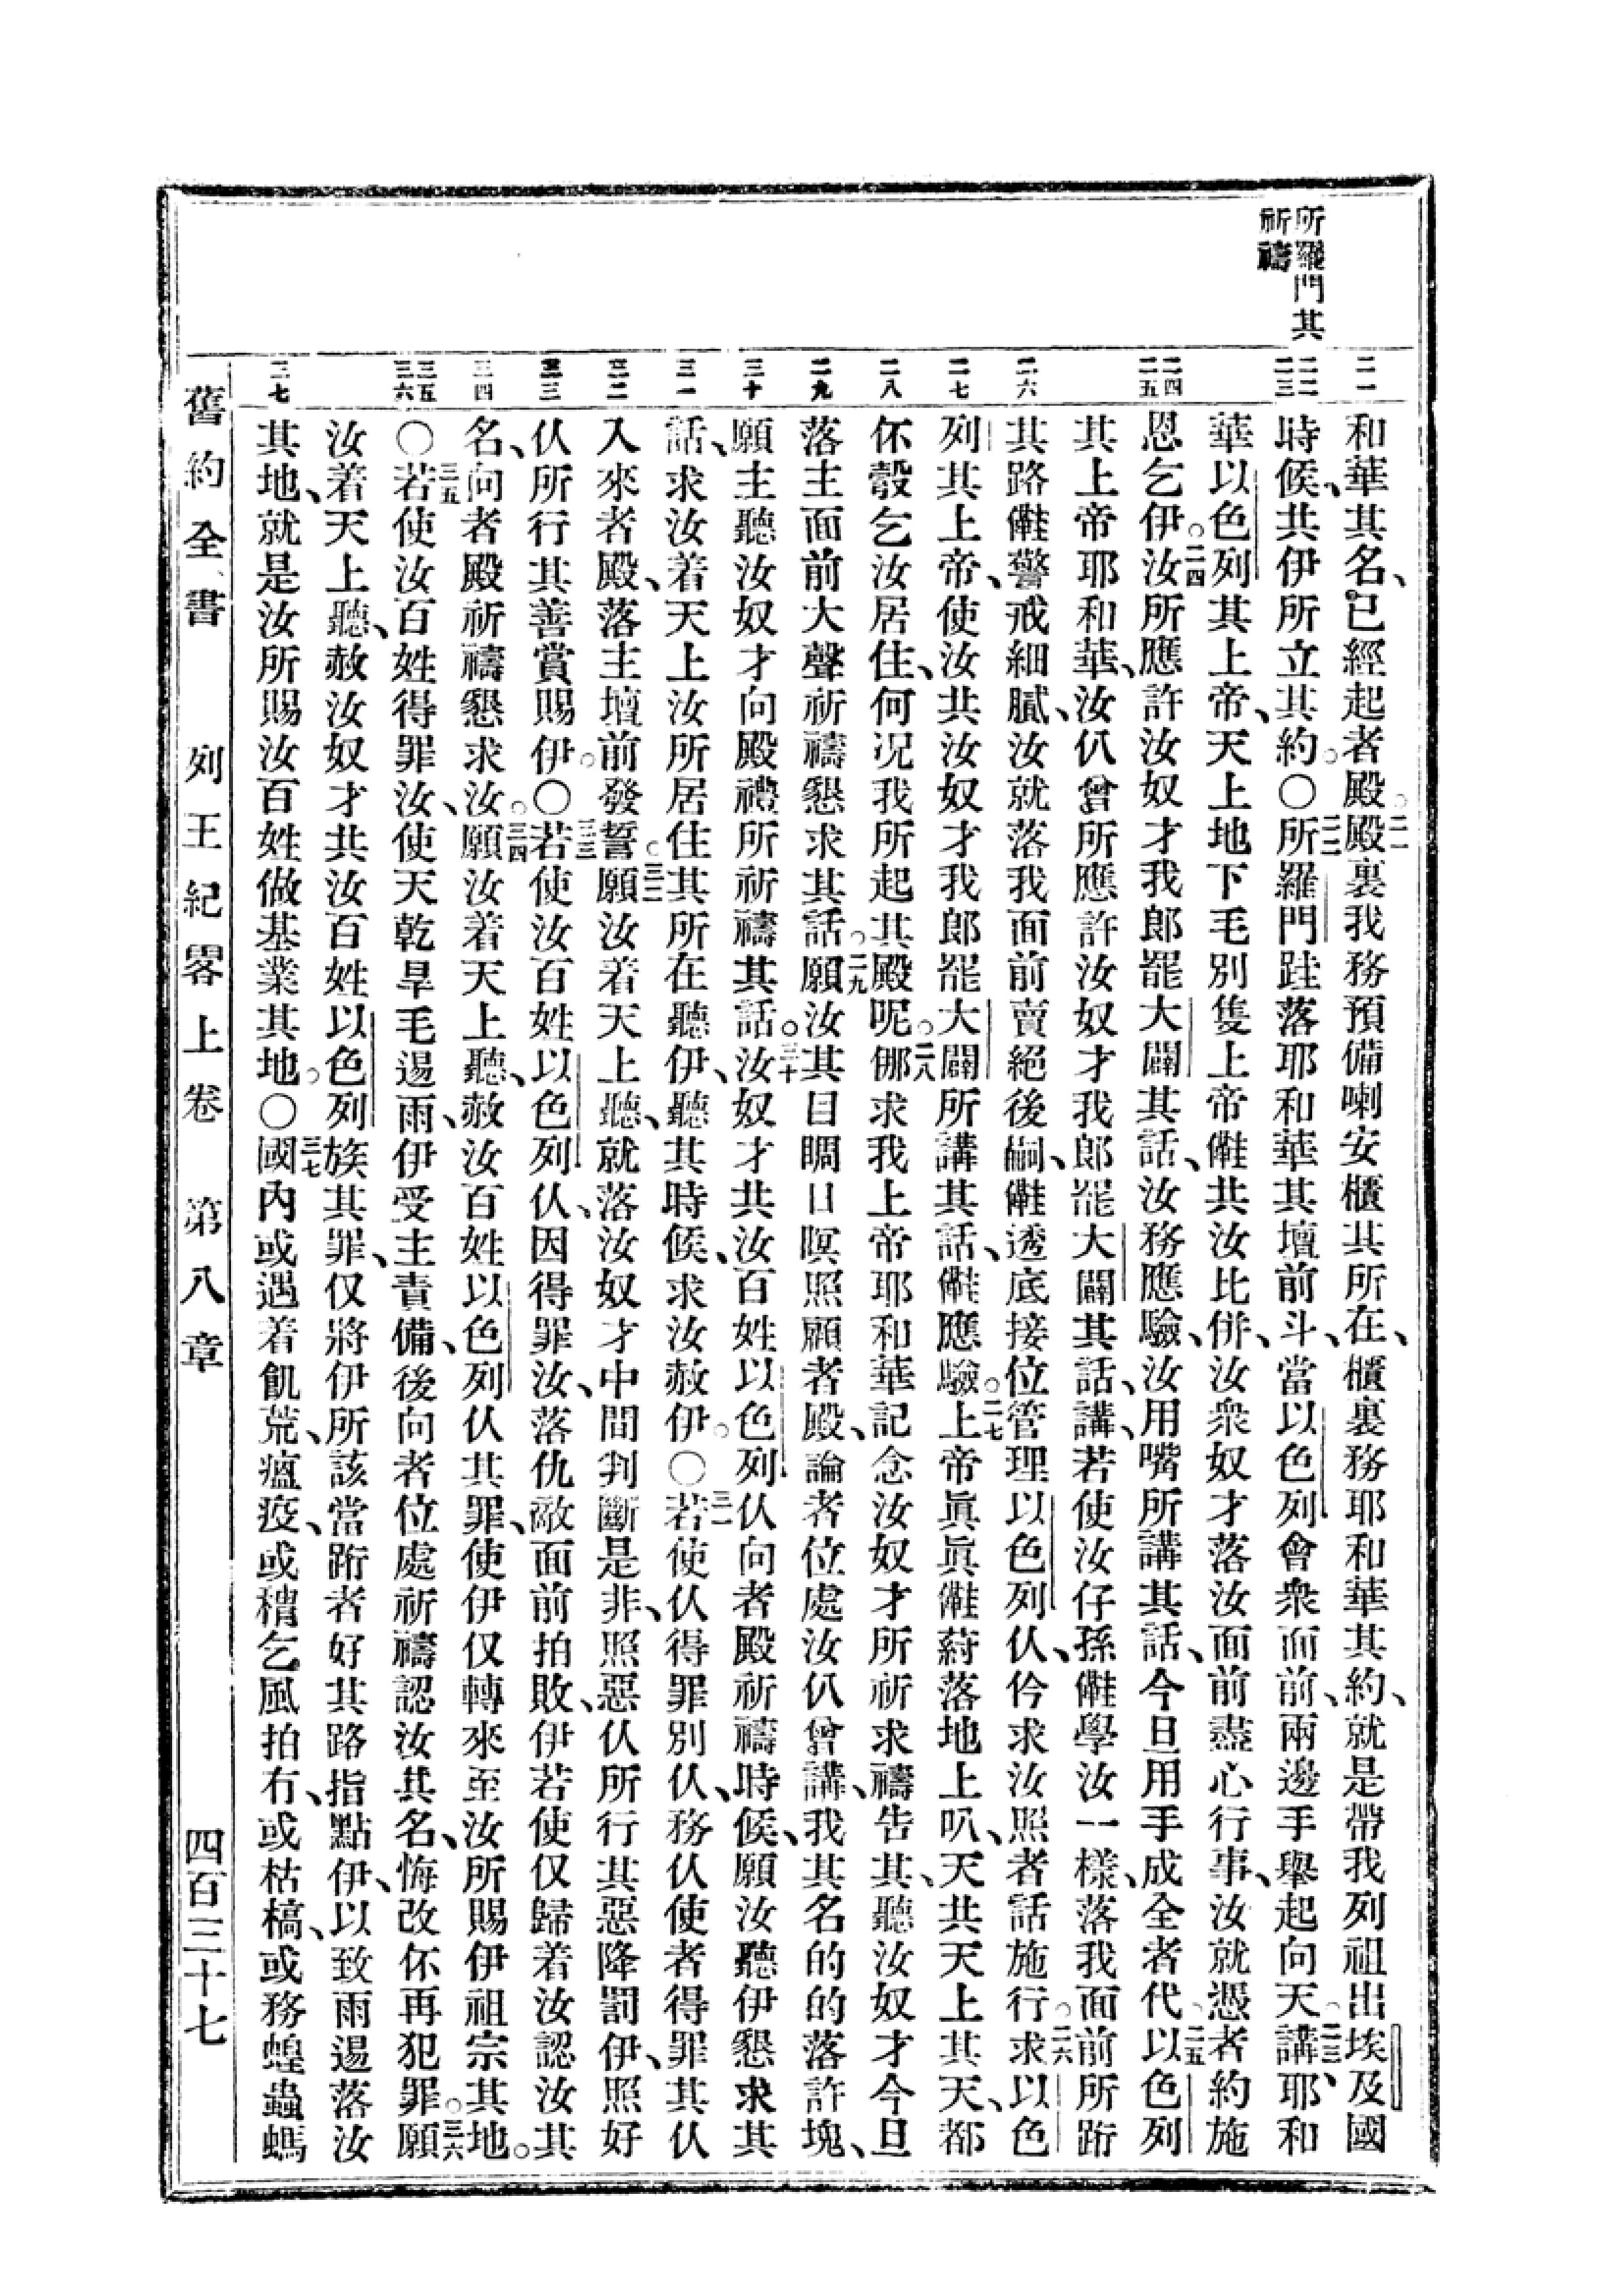 所羅門其
祈禱
二一
二二
二三
二四
二五
二六
二七
二八
二九
三十
三一
三二
三三
三四
三五
三六
三七
和華其名、已經起者殿。二一殿裏我務預備喇安櫃其所在、櫃裏務耶和華其約、就是帶我列祖出埃及國
時候、共伊所立其約。〇二二所羅門跬落耶和華其壇前斗、當以色列會衆面前、兩邊手舉起向天。二三講、耶和
華以色列其上帝、天上地下毛別隻上帝𣍐共汝比併、汝衆奴才落汝面前盡心行事、汝就憑者約施
恩乞伊。二四汝所應許汝奴才我郎罷大闢其話、汝務應驗、汝用嘴所講其話、今旦用手成全者代。二五以色列
其上帝耶和華、汝仈曾所應許汝奴才我郎罷大闢其話、講、若使汝仔孫𣍐學汝一樣、落我面前所跲
其路𣍐警戒細膩、汝就落我面前賣絕後嗣、𣍐透底接位管理以色列仈、仱求汝照者話施行。二六求以色
列其上帝、使汝共汝奴才我郎罷大闢所講其話、𣍐應驗。二七上帝眞眞𣍐䔖落地上叺、天共天上其天、都
伓彀乞汝居住、何况我所起其殿呢。二八㑚求我上帝耶和華記念汝奴才所祈求禱告其、聽汝奴才今旦
落主面前大聲祈禱懇求其話。二九願汝其目睭日暝照顧者殿、論者位處汝仈曾講、我其名的的落許塊、
願主聽汝奴才向殿禮所祈禱其話。三十汝奴才共汝百姓以色列仈向者殿祈禱時候、願汝聽伊懇求其
話、求汝着天上汝所居住其所在聽伊、聽其時候、求汝赦伊。〇三一若使仈得罪別仈、務仈使者得罪其仈
入來者殿、落主壇前發誓。三二願汝着天上聽、就落汝奴才中間判斷是非、照惡仈所行其惡降罰伊、照好
仈所行其善賞賜伊。〇三三若使汝百姓以色列仈、因得罪汝、落仇敵面前拍敗、伊若使仅歸着汝認汝其
名、向者殿祈禱懇求汝。三四願汝着天上聽、赦汝百姓以色列仈其罪、使伊仅轉來至汝所賜伊祖宗其地。
〇三五若使汝百姓得罪汝、使天乾旱毛逿雨、伊受主責備、後向者位處祈禱認汝其名、悔改伓再犯罪。三六願
汝着天上聽、赦汝奴才共汝百姓以色列族其罪、仅將伊所該當跲者好其路指點伊、以致雨逿落汝
其地、就是汝所賜汝百姓做基業其地。〇三七國內或遇着飢荒、瘟疫、或穧乞風拍冇、或枯槁、或務蝗蟲螞
舊約全書 列王紀畧上卷 第八章 四百三十七